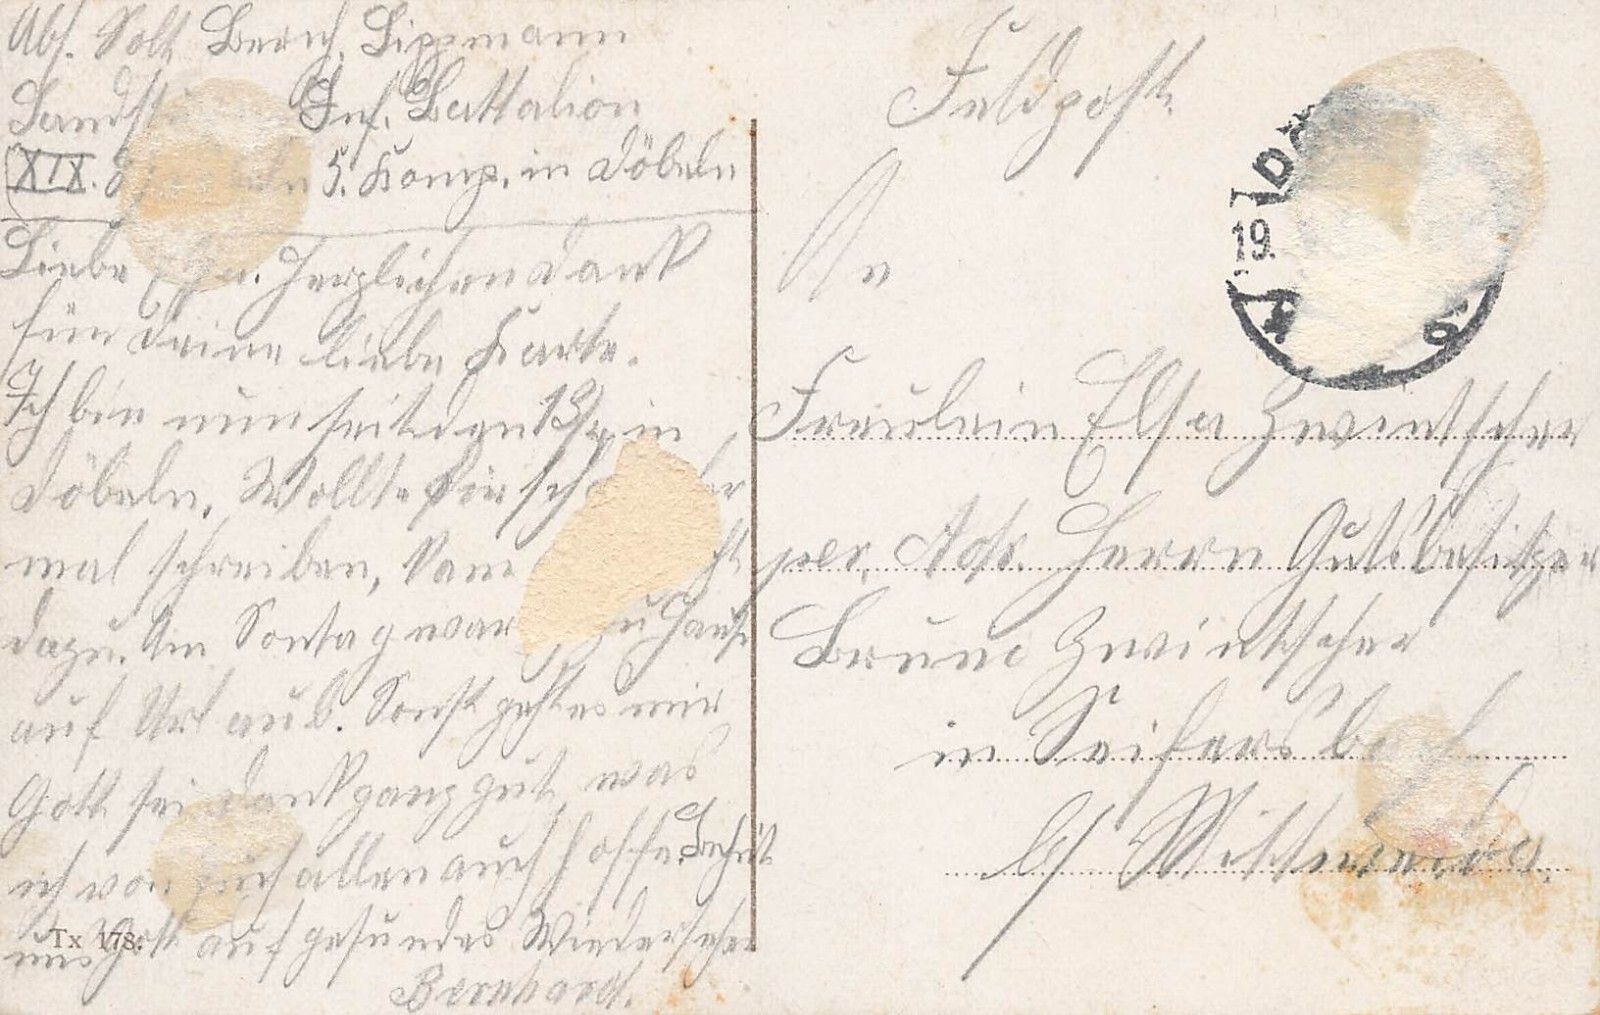 Abs. Sold. Bernh. Lippmann
Landst Inf. Battalion
XIX. 5. Komp. in Döbeln
Liebe Elsa. Herzlichen Dank
für deine liebe Karte.
Ich bin nun seit den in
Döbeln. Wollte dir
mal schreiben, kam
dazu. Am Sontag war zu Hause
auf Url aub. Sonst geht es mir
Gott sei dank ganz gut, was
ich von euch allen auch hoffe. Behüt
uns Gott auf gesundes Wiedersehen
Bernhard.
Tx 178.
Feldpost.
An
Fräulein Elsa Zwintscher
per. Adr. Herrn Gutsbesitzer
Bruno Zwintscher
in Seifersbach
b/ Mittweida.
DÖ
19.